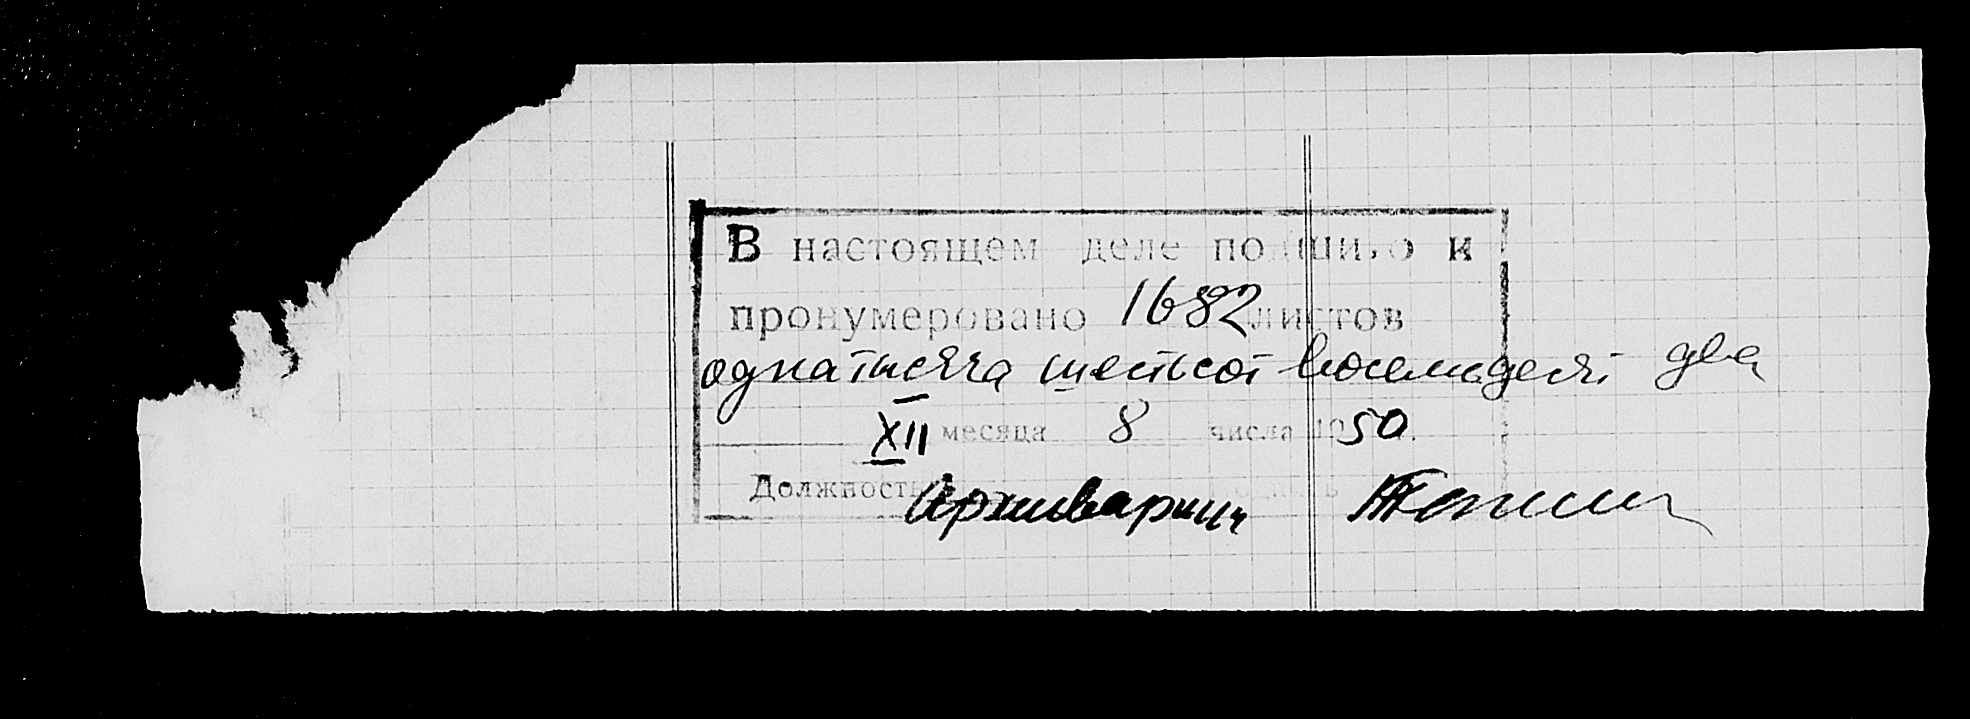 В настоящем деле подшито и
пронумеровано 1682 листов
одна тысяча шестьсот восемьдесят два
XII месяца 8 числа 1950.
Должность Архивариус